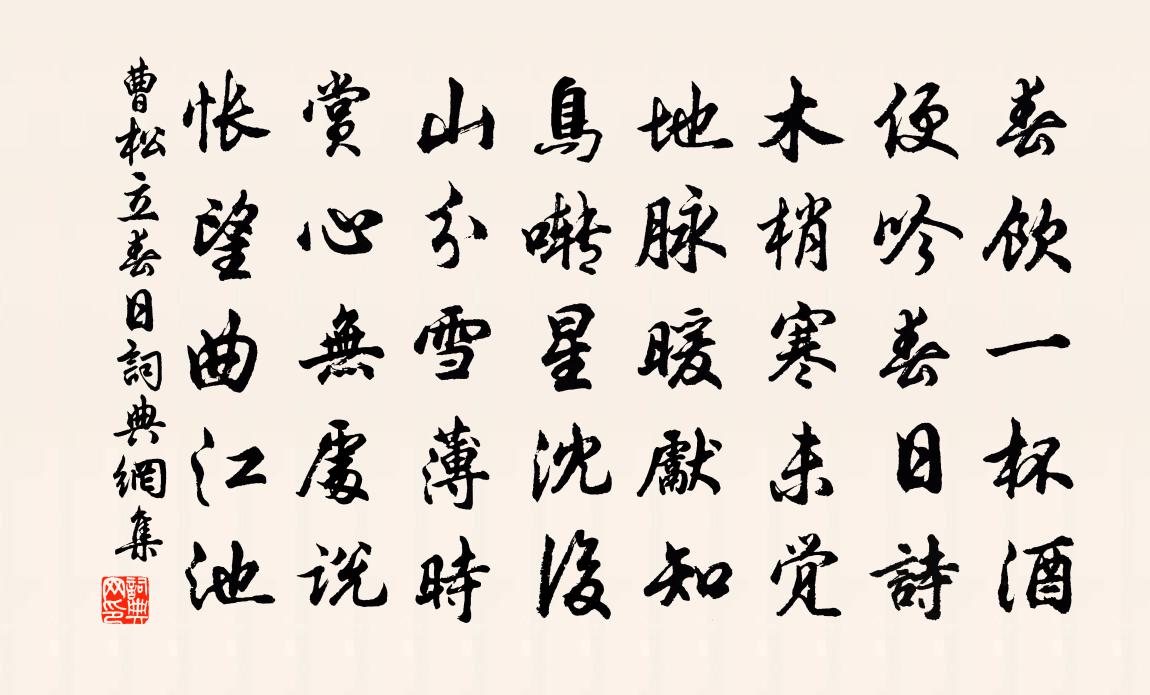 春飲一杯酒
便吟春日詩
木梢寒未覚
地脉暖獻知
鳥囀星沈後
山分雪薄時
賞心無處説
悵望曲江池
曹松立春日詞典網集
詞典网印